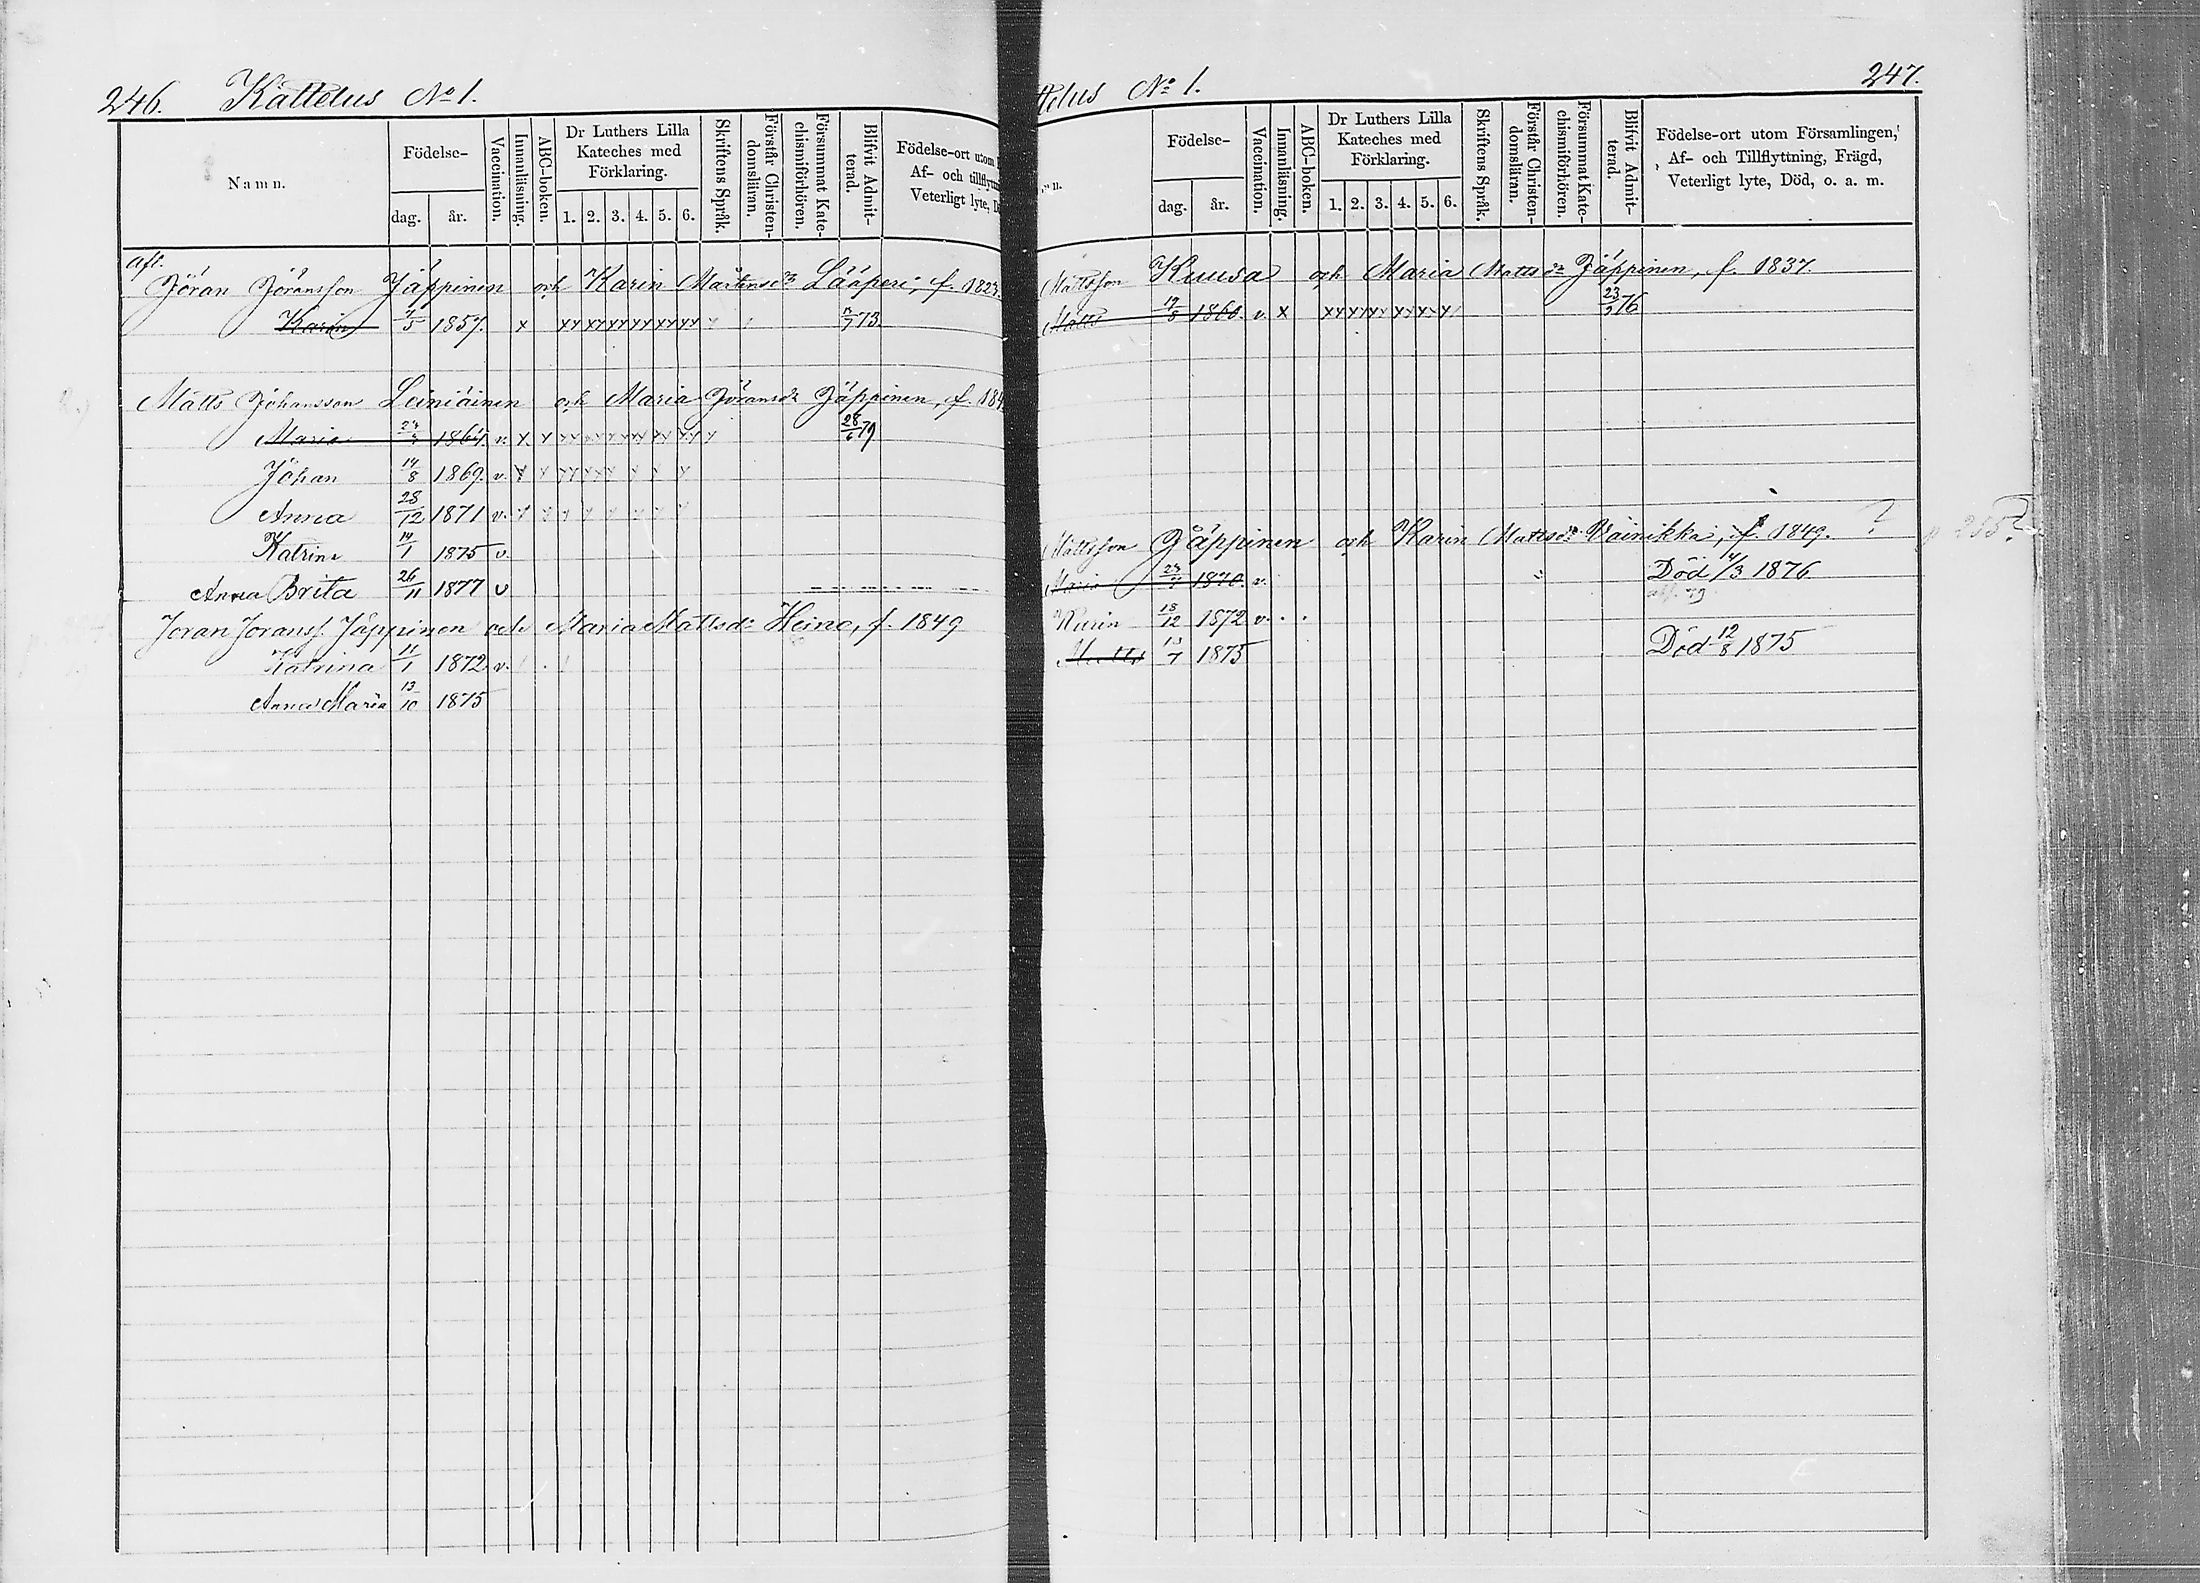 246. Kattelus No 1.
Namn.
Födelse-
dag.
år.
Vaccination.
Innanläsning.
ABC-boken.
Dr Luthers Lilla
Kateches med
Förklaring.
1. 2. 3. 4. 5. 6.
Skriftens Språk.
Förstår Christen-
domsläran.
Försummat Kate-
chismiförhören.
Blifvit Admit-
terad.
Födelse-ort utom
Af- och tillflytt
Veterligt lyte, D
Afl.
Jöran Jöransson Jäppinen och Karin Mårtensdr Lääperi, f. 1823.
Karin 1857. x xx xx xx xx xx xx 73
Matts Johansson Leiniäinen och Maria Jöransdr Jäppinen, f. 184
Maria 1864 v. x x 28/6 79
Johan 14/8 1869. v. x x
Anna 28/12 1871 v.
Katrina 14/1 1875 v.
Anna Brita 26/11 1877 v
Joran Joranss. Jäppinen och Maria Mattsdr Heino, f. 1849
Katrina 11/1 1872. v.
Anna Maria 13/10 1875
ttelus No 1.
247.
n.
Födelse-
dag.
år.
Vaccination.
Innanläsning.
ABC-boken.
Dr Luthers Lilla
Kateches med
Förklaring.
1. 2. 3. 4. 5. 6.
Skriftens Språk.
Förstår Christen-
domsläran.
Försummat Kate-
chismiförhören.
Blifvit Admit-
terad.
Födelse-ort utom Församlingen,
Af- och Tillflyttning, Frägd,
Veterligt lyte, Död, o. a. m.
Mattsson Kuusa och Maria Mattsdr Jäppinen, f. 1837.
Matts 1860. v. x 23/9 76
Mattsson Jäppinen och Karin Mattsdr Vainikka, f. 1849. ? p 255?
Maria 1870. v. Död 14/3 1876
Karin 18/12 1872 v.
Matts 13/7 1875 Död 12/8 1875